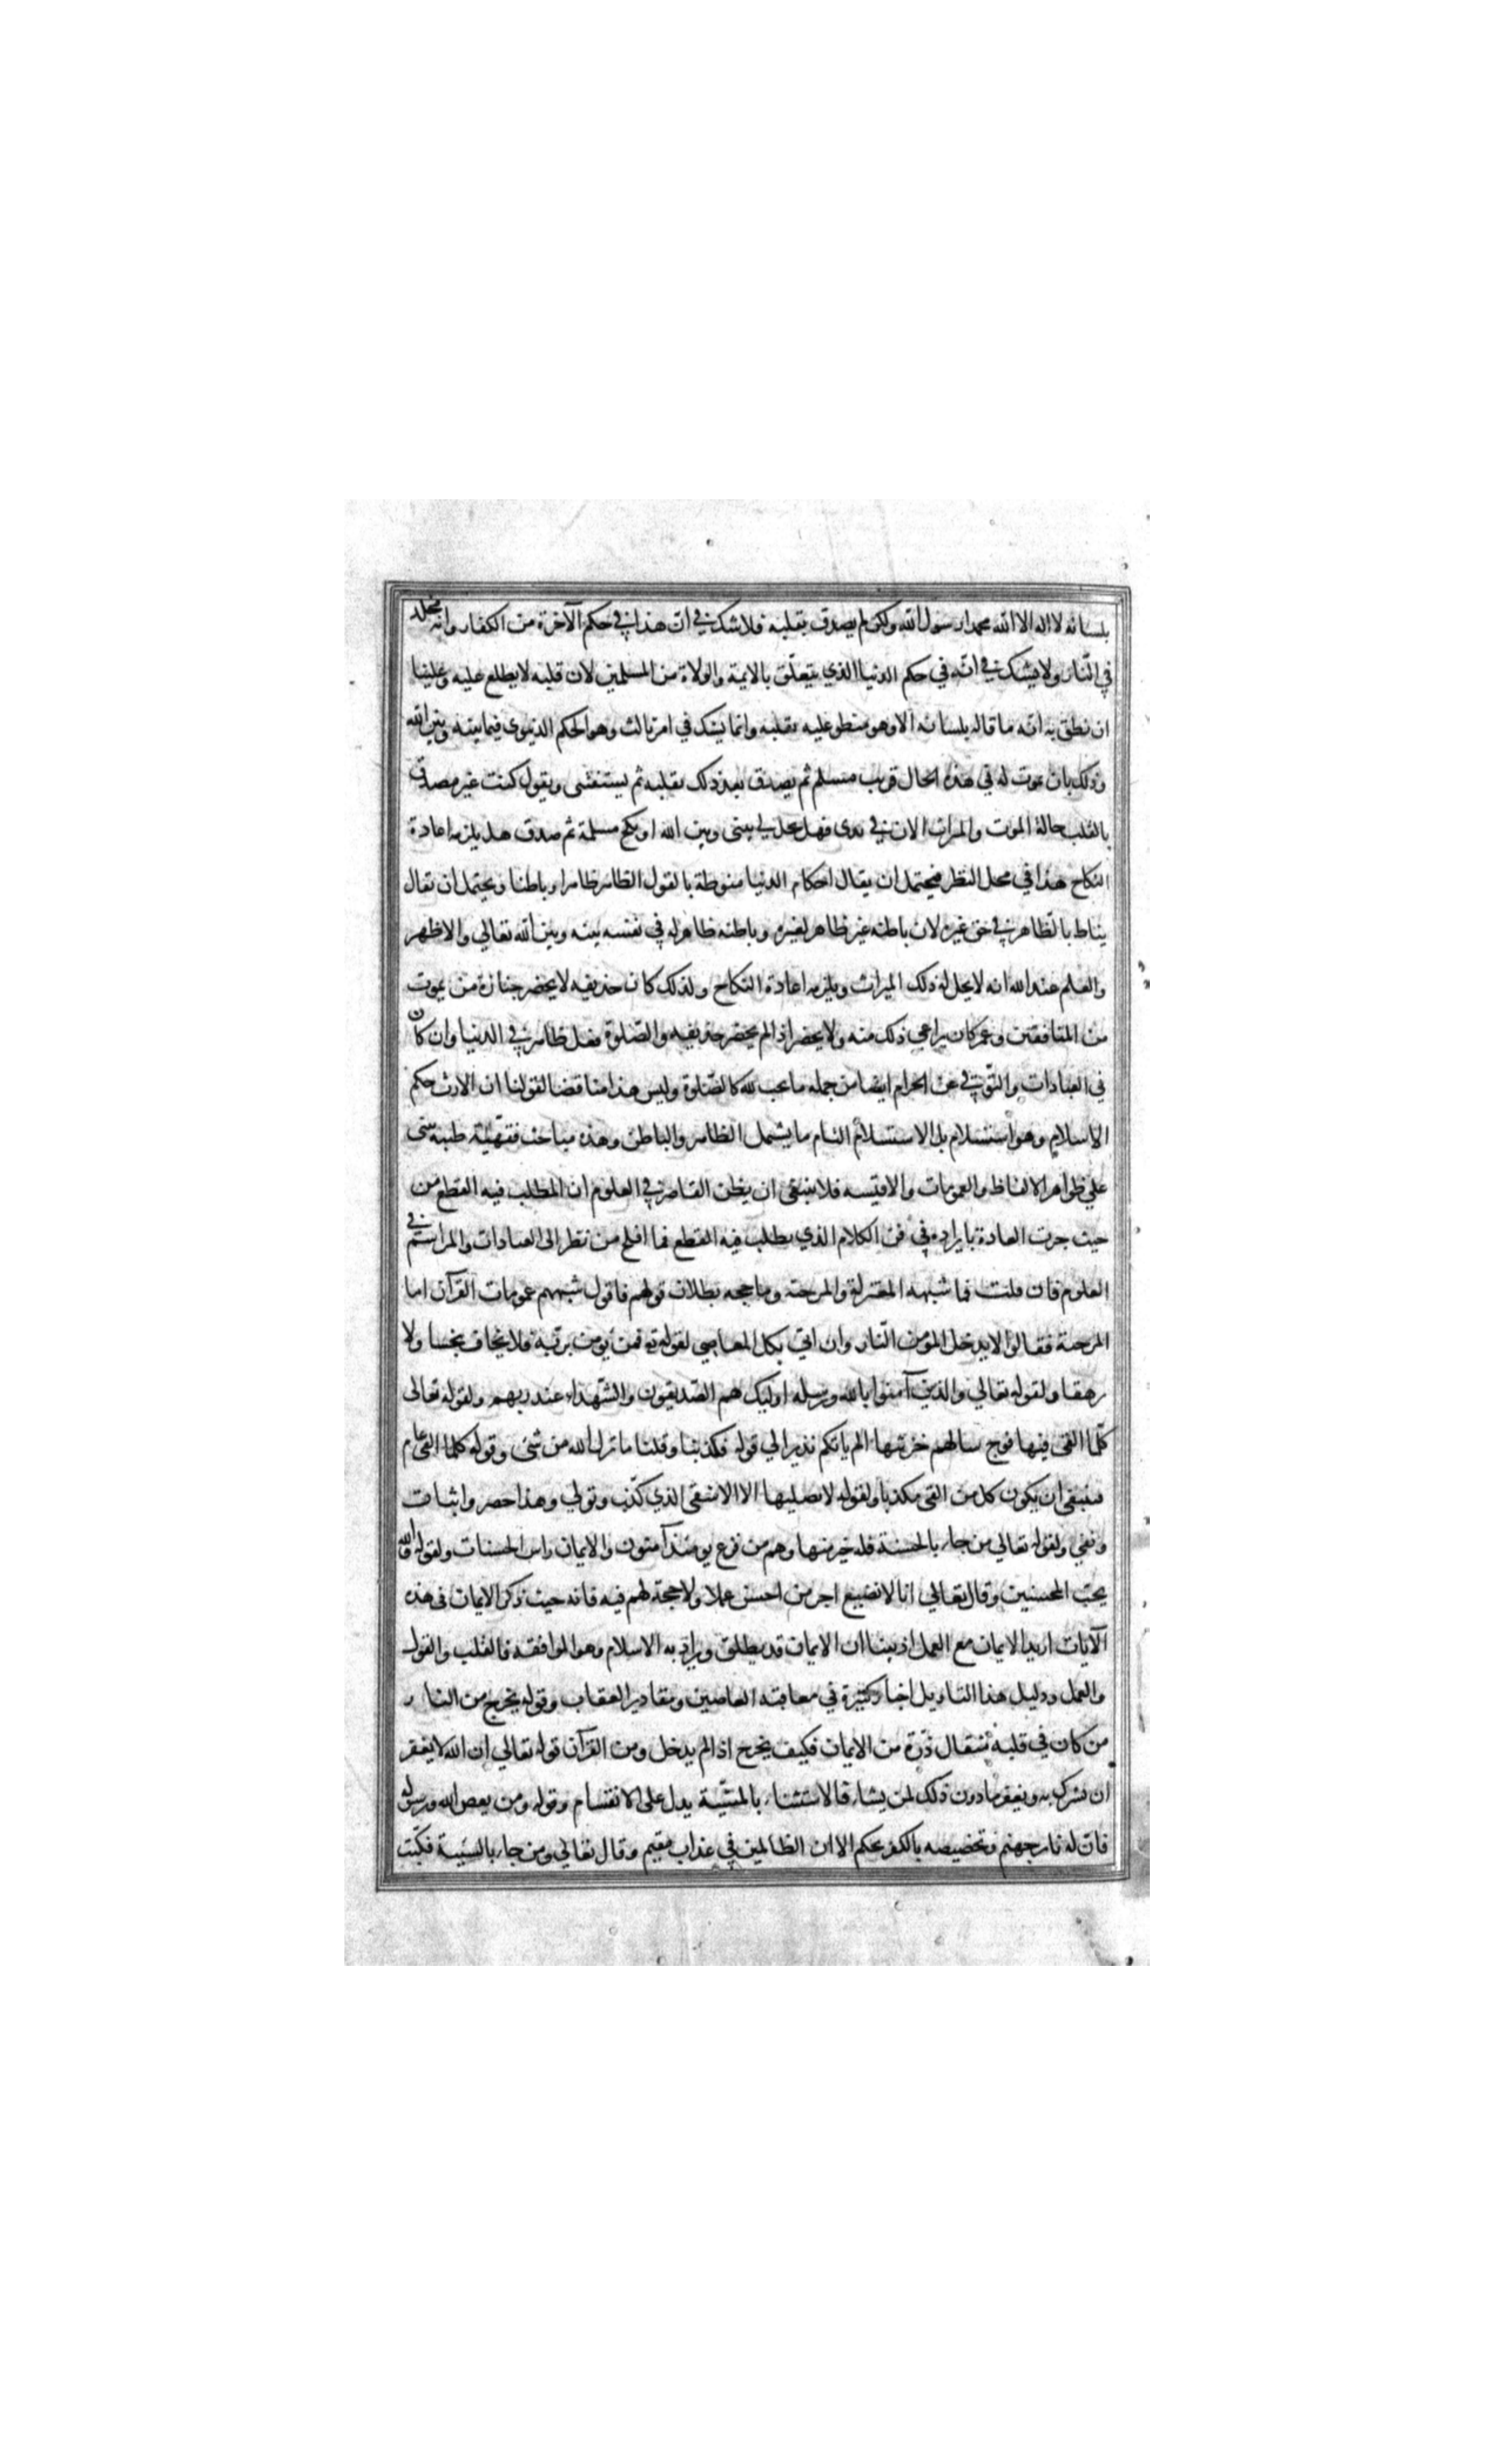 بلسانه لا اله الا الله محمد رسول الله ولكن لم يصدق بقلبه فلا شك في ان هذا في حكم الآخرة من الكفار وانه مخلد
في النار ولا يشك في انه في حكم الدنيا الذي يتعلق بالايمة والولاة من المسلمين لان قلبه لا يطلع عليه وعلينا
ان نطق به انه ما قاله بلسانه الا وهو منطو عليه بقلبه وانما يشك في امر ثالث وهو الحكم الدنيوي فيما بينه وبين الله
وذلك بان يموت له في هذه الحال قريب مسلم ثم يصدق بعد ذلك بقلبه ثم يستفتى ويقول كنت غير مصدق
بالقلب حالة الموت والميراث الان في يدى فهل يحل لي بيني وبين الله او نكح مسلمة ثم صدق هل يلزمه اعادة
النكاح هذا في محل النظر فيحتمل ان يقال احكام الدنيا منوطة بالقول الظاهر ظاهرا وباطنا ويحتمل ان يقال
يناط بالظاهر في حق غيره لان باطنه غير ظاهر لغيره وباطنه ظاهر له في نفسه بينه وبين الله تعالي والاظهر
والعلم عند الله انه لا يحل له ذلك الميراث ويلزمه اعادة النكاح ولذلك كان حذيفه لا يحضر جنازة من يموت
من المنافقين وعمر كان يراعي ذلك منه ولا يحضر اذا لم يحضر حذيفه والصلوة فعل ظاهر في الدنيا وان كان
في العبادات والتوقي عن الحرام ايضا من جمله ما يجب لله كالصلوة وليس هذا مناقضا لقولنا ان الارث حكم
الاسلام وهو استسلام بل الاستسلام التام ما يشمل الظاهر والباطن وهذه مباحث فقهية ظنية تبنى
علي ظواهر الالفاظ والعمومات والاقيسه فلا ينبغى ان يظن القاصر في العلوم ان المطلب فيه القطع من
حيث جرت العادة بايراده في فن الكلام الذي يطلب فيه القطع فما افلح من نظر الى العادات والمراسم في
العلوم فان قلت فما شبهه المعتزلة والمرجئة وما حجه بطلان قولهم فاقول شبههم عمومات القرآن اما
المرجئة فقالوا لا يدخل المؤمن النار وان اتي بكل المعاصي لقوله تع فمن يومن بربه فلا يخاف بخسا ولا
رهقا ولقوله تعالي والذين آمنوا بالله ورسله اوليك هم الصديقون والشهداء عند ربهم ولقوله تعالى
كلما القى فيها فوج سالهم خزنتها الم ياتكم نذير الي قوله فكذبنا وقلنا ما نزل الله من شئ وقوله كلما القى عام
فينبغي ان يكون كل من القى مكذبا ولقوله لا يصليها الا الاشقى الذي كذب وتولي وهذا حصر واثبات
ونفي ولقوله تعالي من جاء بالحسنة فله خير منها وهم من فزع يومئذ آمنون والايمان راس الحسنات ولقوله والله
يحب المحسنين وقال تعالي انا لا نضيع اجر من احسن عملا ولا حجة لهم فيه فانه حيث ذكر الايمان فى هذه
الآيات اريد الايمان مع العمل اذ بينا ان الايمان قد يطلق ويراد به الاسلام وهو الموافقة فالقلب والقول
والعمل ودليل هذا التاويل اخبار كثيرة في معاقبه العاصين ومقادير العقاب وقوله يخرج من النار
من كان في قلبه مثقال ذرة من الايمان فكيف يخرج اذا لم يدخل ومن القرآن قوله تعالي ان الله لا يغفر
ان يشرك به ويغفر ما دون ذلك لمن يشاء فالاستثناء بالمشية يدل على الانقسام وقوله ومن يعص الله ورسوله
فان له نار جهنم وتخصيصه بالكفر تحكم الا ان الظالمين في عذاب مقيم وقال تعالي ومن جاء بالسيئة فكبت